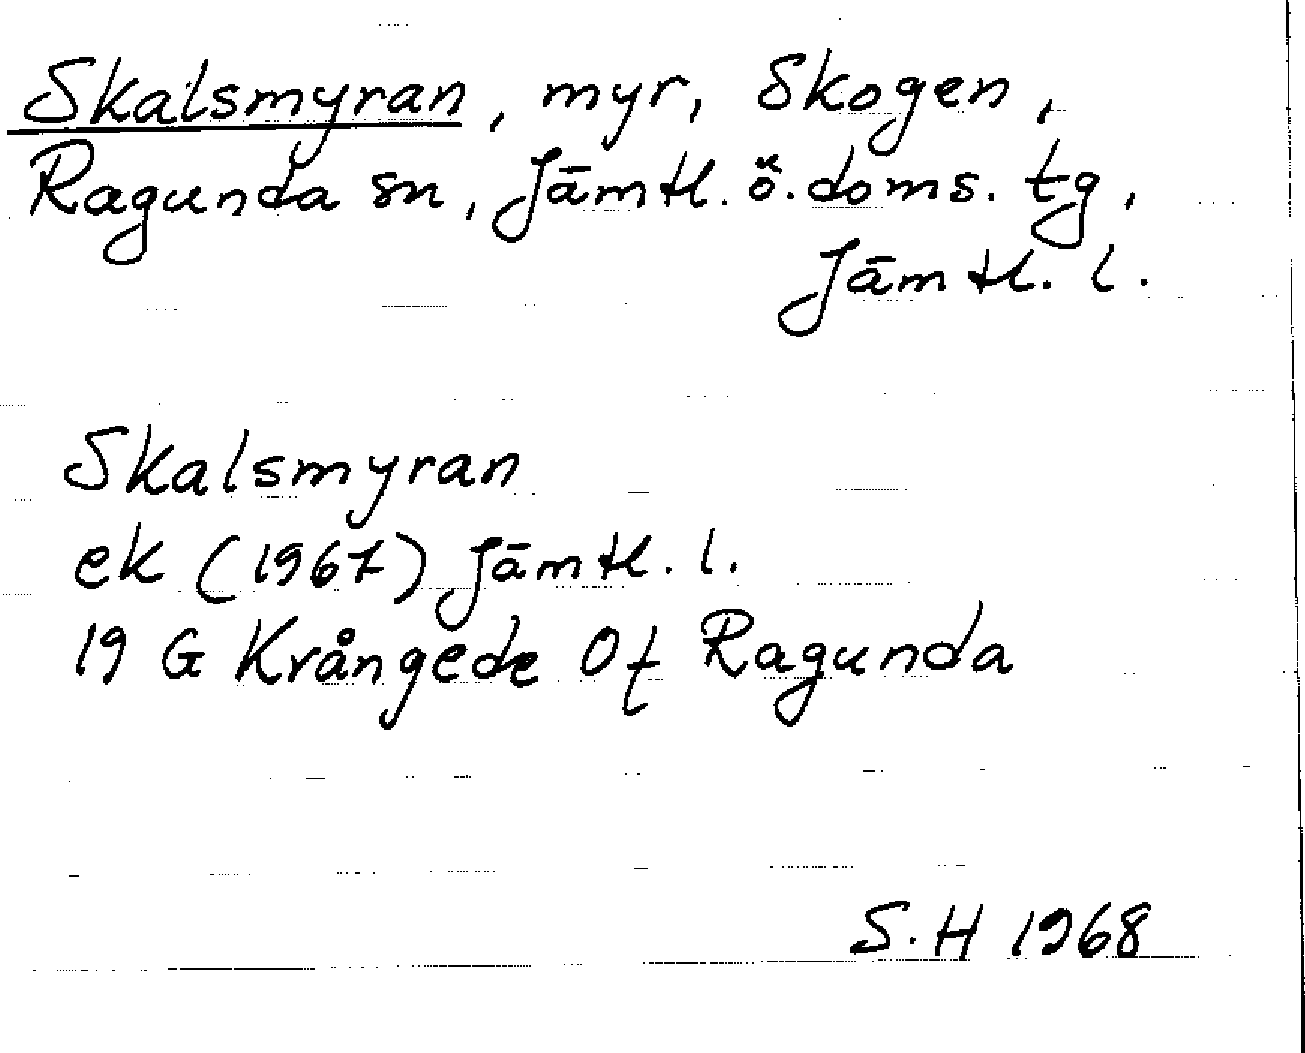 Skalsmyran, myr, Skogen,
Ragunda sn, Jämtl. ö. doms. tg,
Jämtl. l.
Skalsmyran
ek (1967) Jämtl. l.
19 G Krångede Of Ragunda
S.H 1968